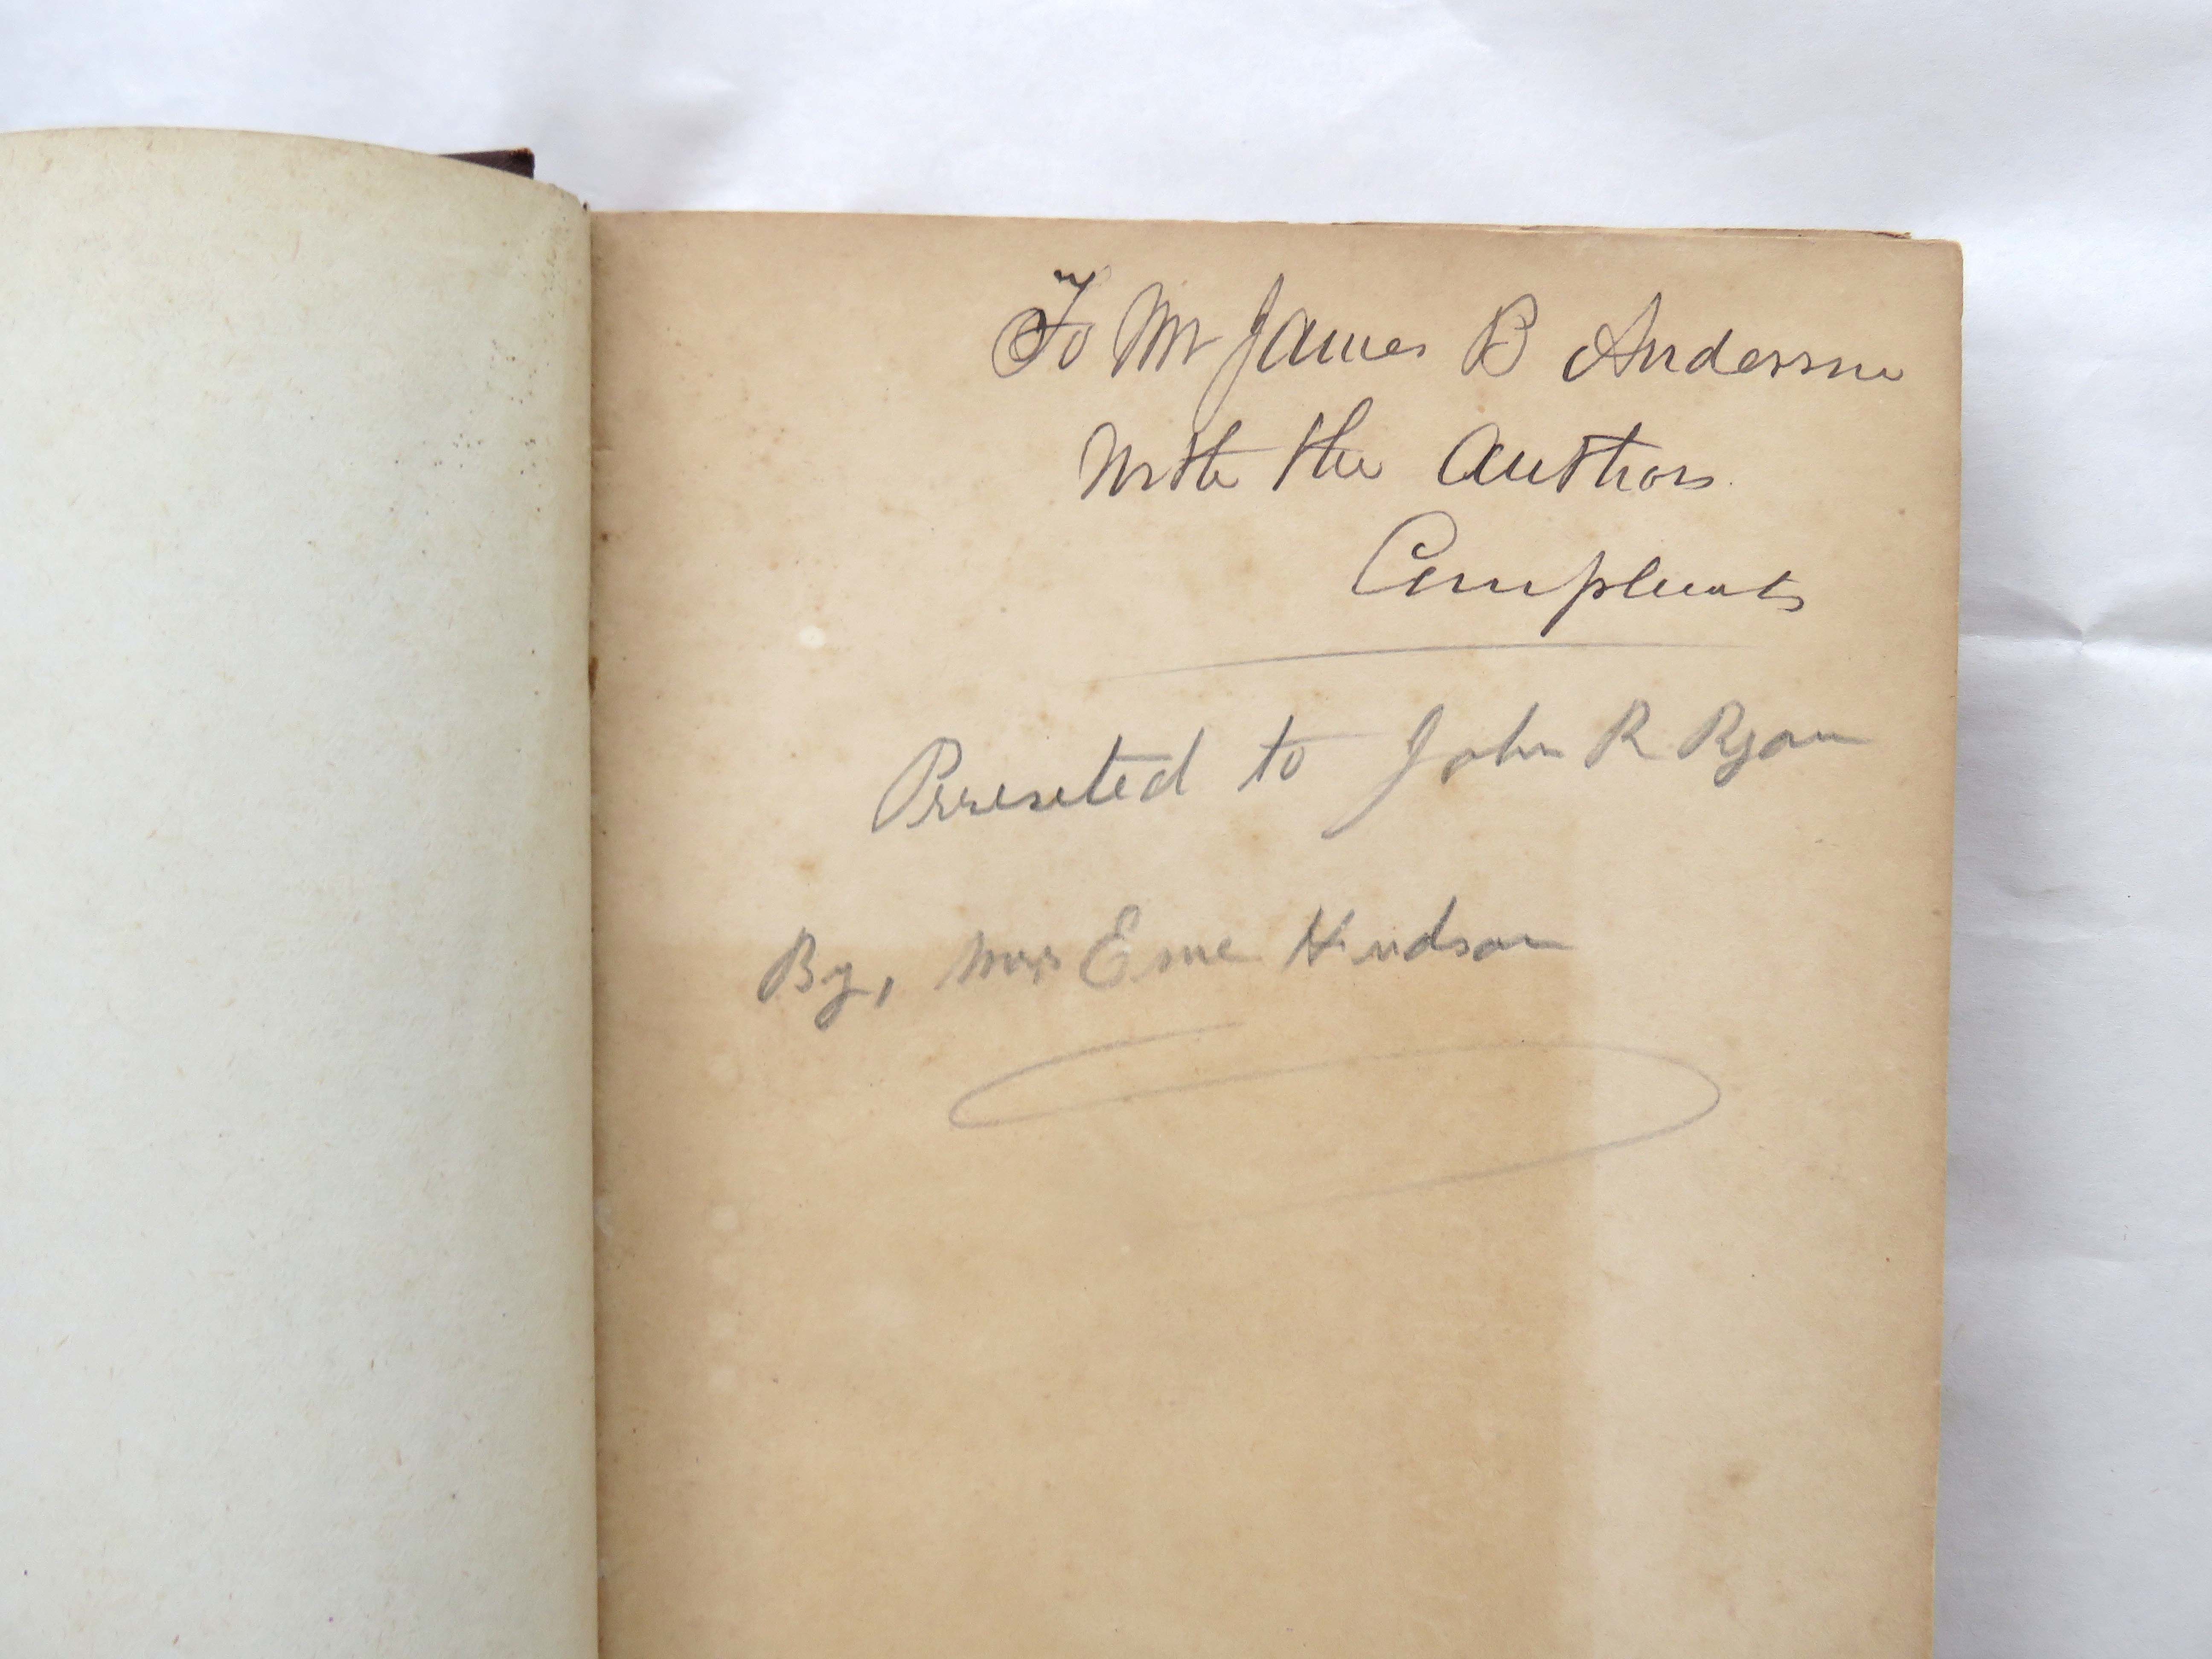 To Mr James B Anderson
With the Authors
Compliments
Presented to John R Ryan
By, Mrs Esme Hudson